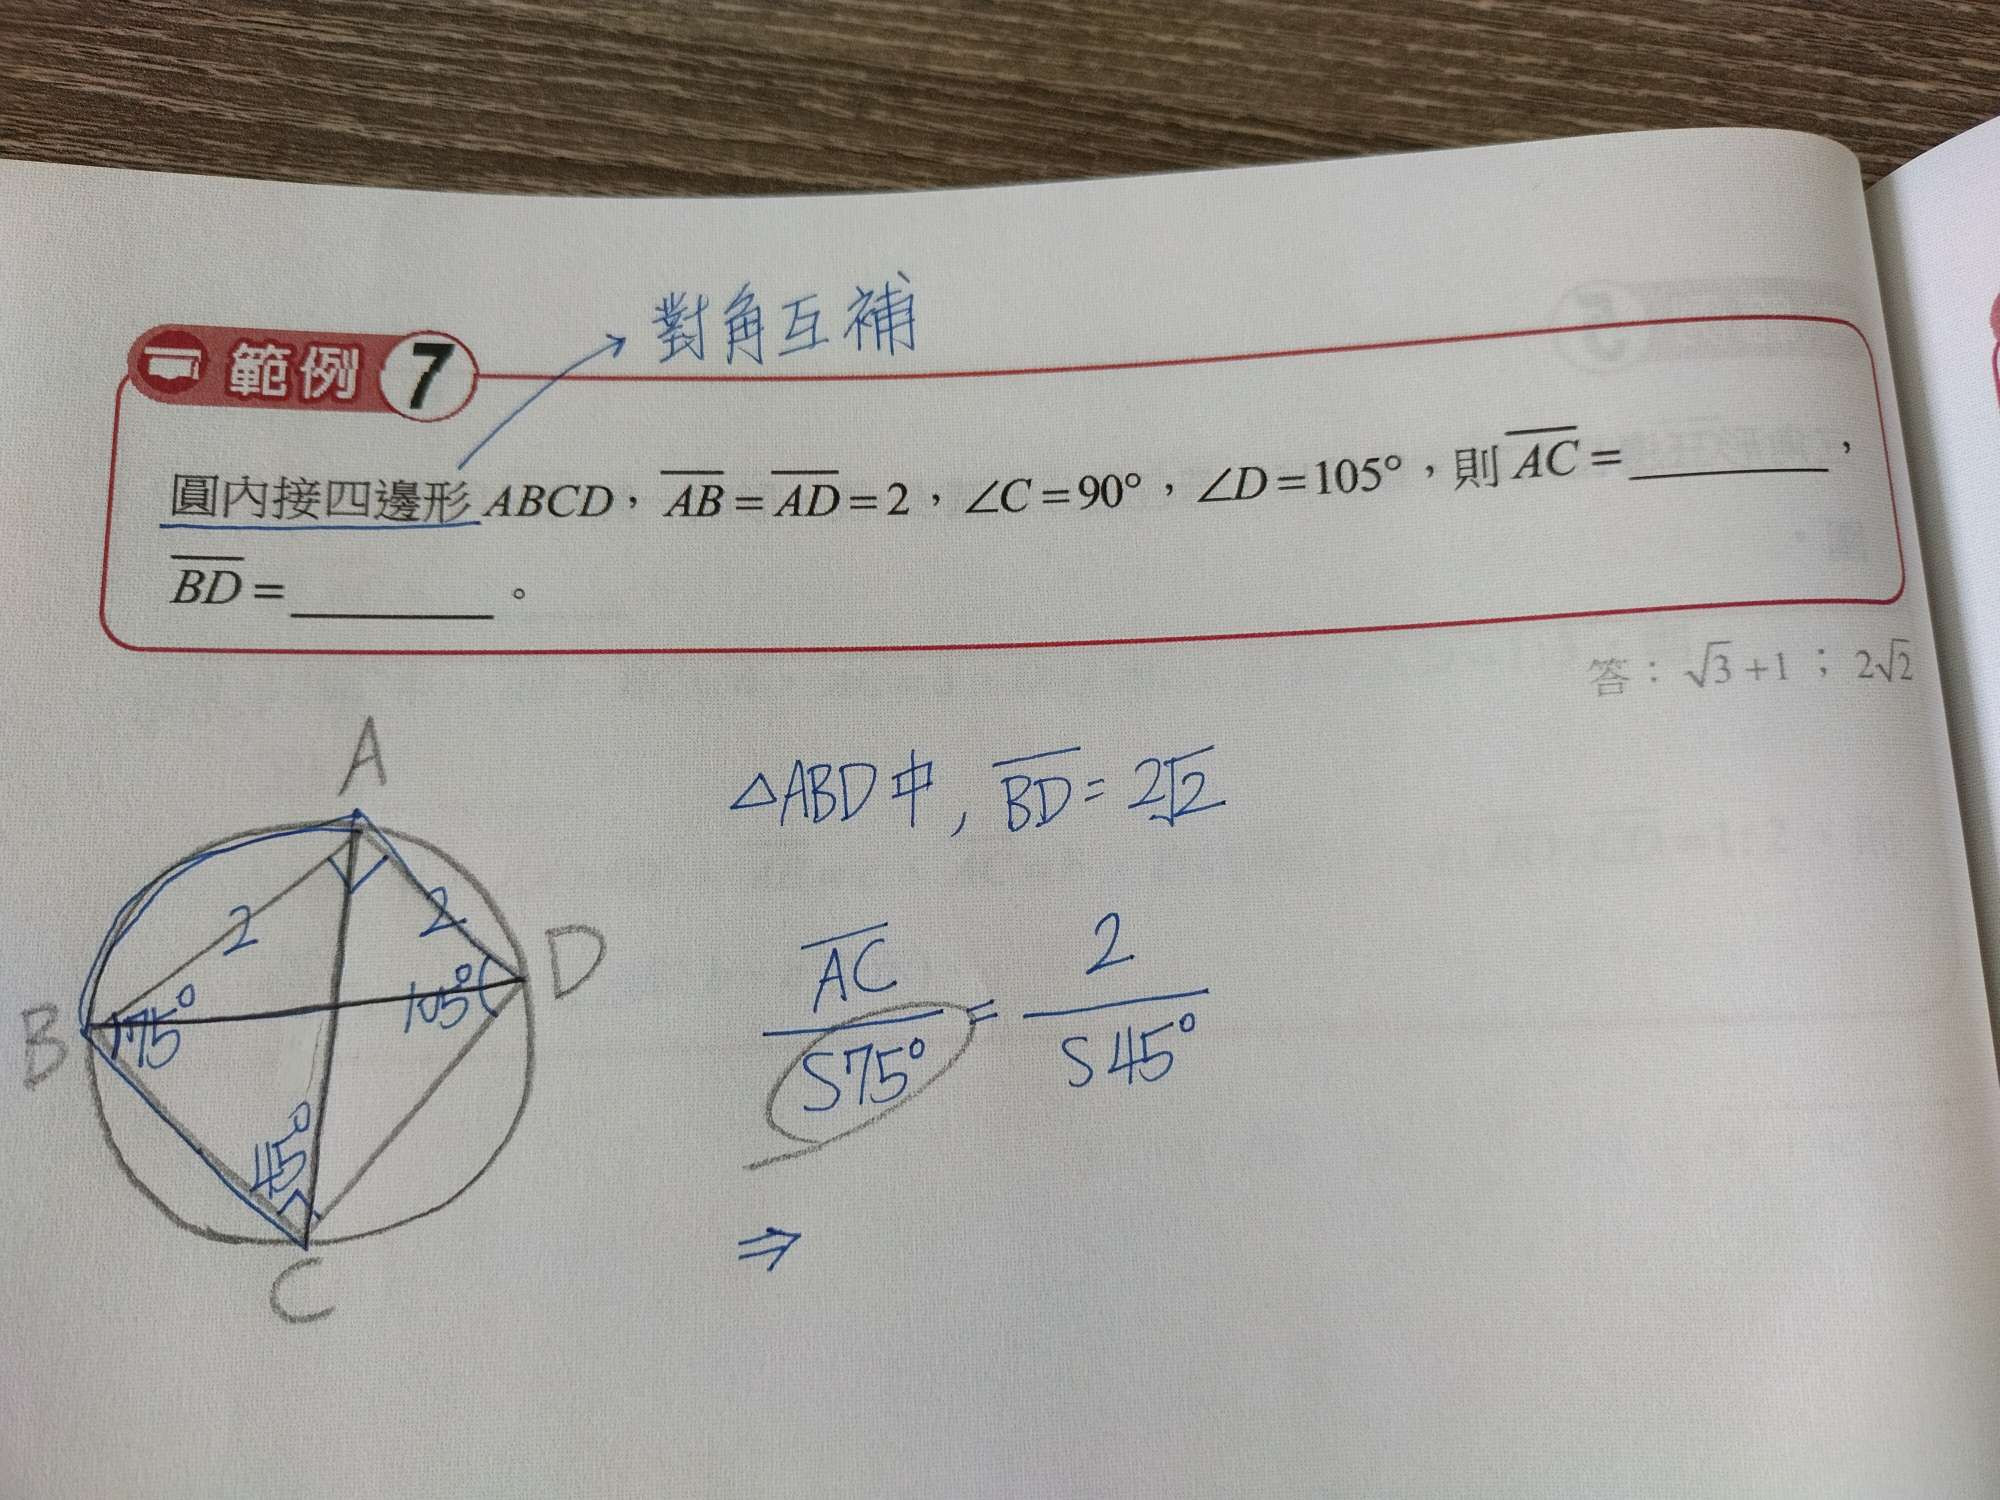 對角互補
範例 7
圓內接四邊形 ABCD，\overline{AB}=\overline{AD}=2，∠C=90°，∠D=105°，則 \overline{AC}=________，
\overline{BD}=________。
答：√3+1；2√2
A
2
2
B
D
75°
105°
45°
C
△ABD中, \overline{BD}=2√2
\overline{AC}/S75° = 2/S45°
⇒